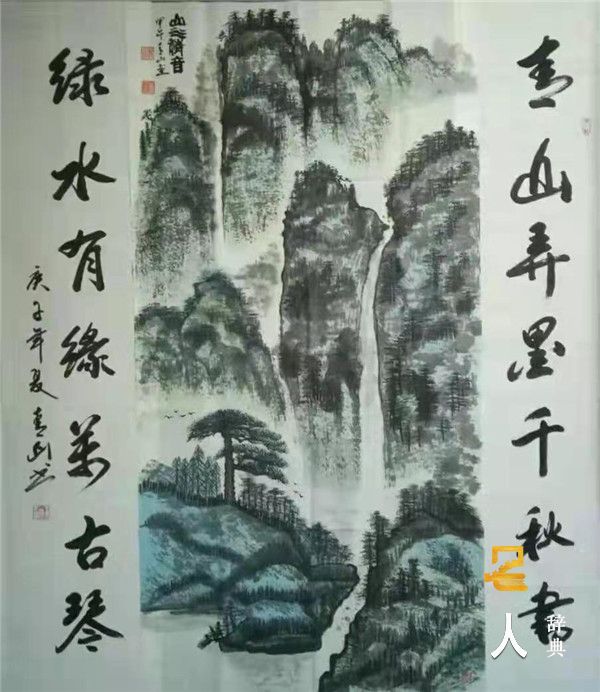 青山弄墨千秋画
绿水有缘万古琴
庚子年夏 青山书
山谷清音
甲午青山画
人
辞典